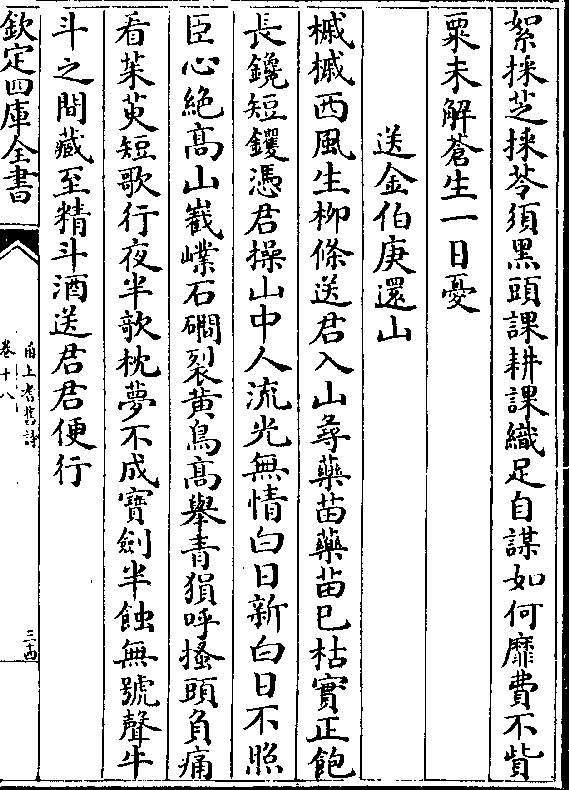 絮採芝採苓須黑頭課耕課織足自謀如何靡費不貲
粟未解蒼生一日憂
送金伯庚還山
槭槭西風生柳條送君入山尋藥苗藥苗已枯實正飽
長鑱短钁憑君操山中人流光無情白日新白日不照
臣心絶髙山嶻嶫石磵裂黃鳥髙舉青猨呼搔頭負痛
看茱萸短歌行夜半歌枕夢不成寶劍半蝕無號聲牛
斗之間藏至精斗酒送君君便行
欽定四庫全書
甬上耆舊詩
卷十八
三十四